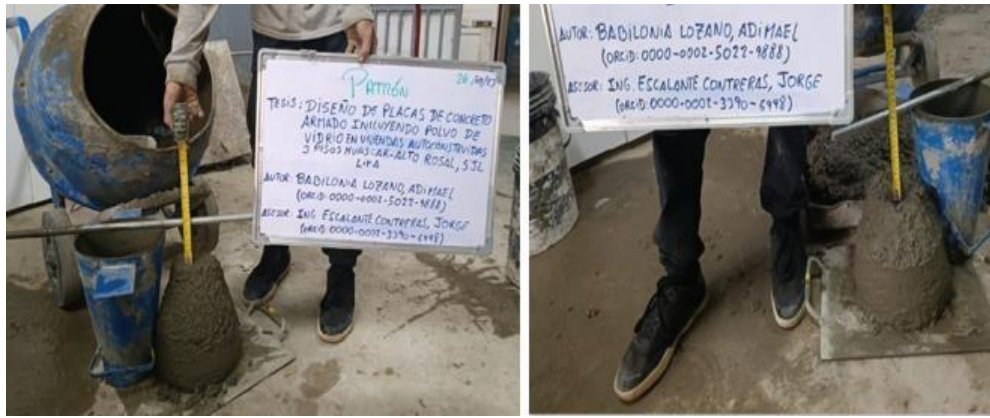 PATRÓN
TESIS: DISEÑO DE PLACAS DE CONCRETO
ARMADO INCLUYENDO POLVO DE
VIDRIO EN VIVIENDAS AUTOCONSTRUIDAS
3 PISOS HUAS: AR-ALTO ROSAL, SJL
LIMA
AUTOR: BABILONIA LOZANO, ADIMAEL
(ORCID: 0000-0002-5022-9888)
ASESOR: ING. ESCALANTE CONTRERAS, JORGE
(ORCID: 0000-0002-3390-6448)
AUTOR: BABILONIA LOZANO, ADIMAEL
(ORCID: 0000-0002-5022-9888)
ASESOR: ING. ESCALANTE CONTRERAS, JORGE
(ORCID: 0000-0002-3390-6448)